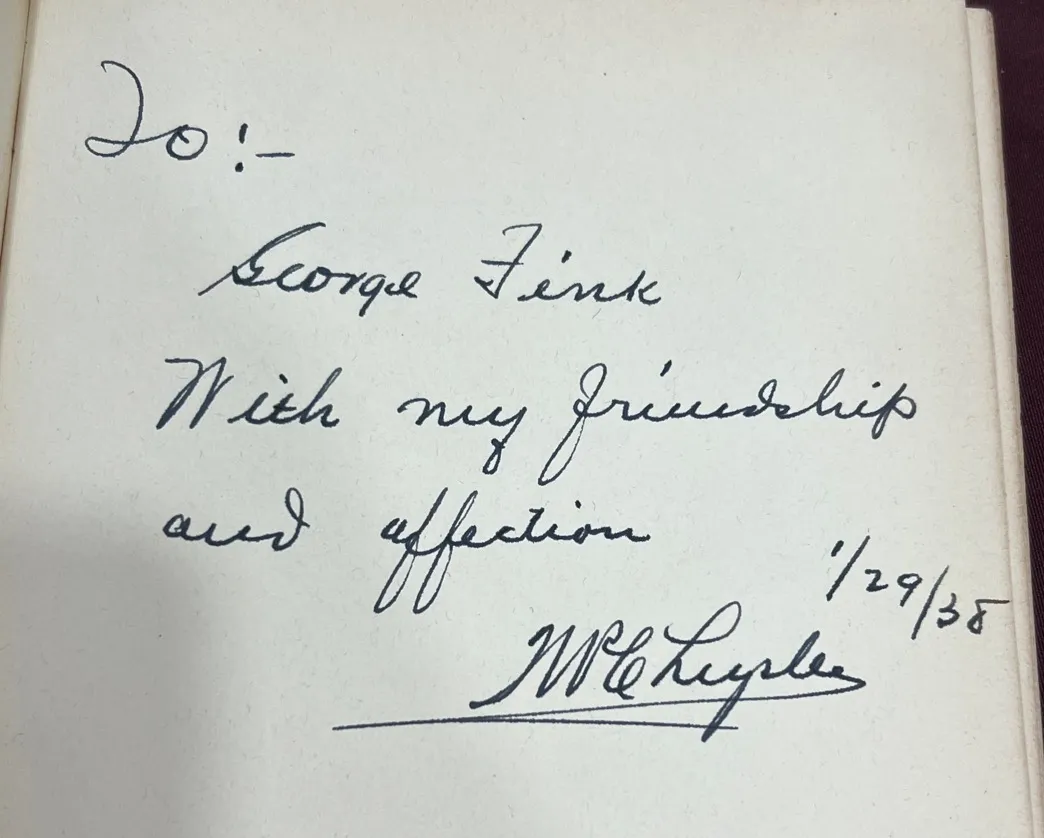 To:-
George Fink
With my friendship
and affection
1/29/38
WPChrysler